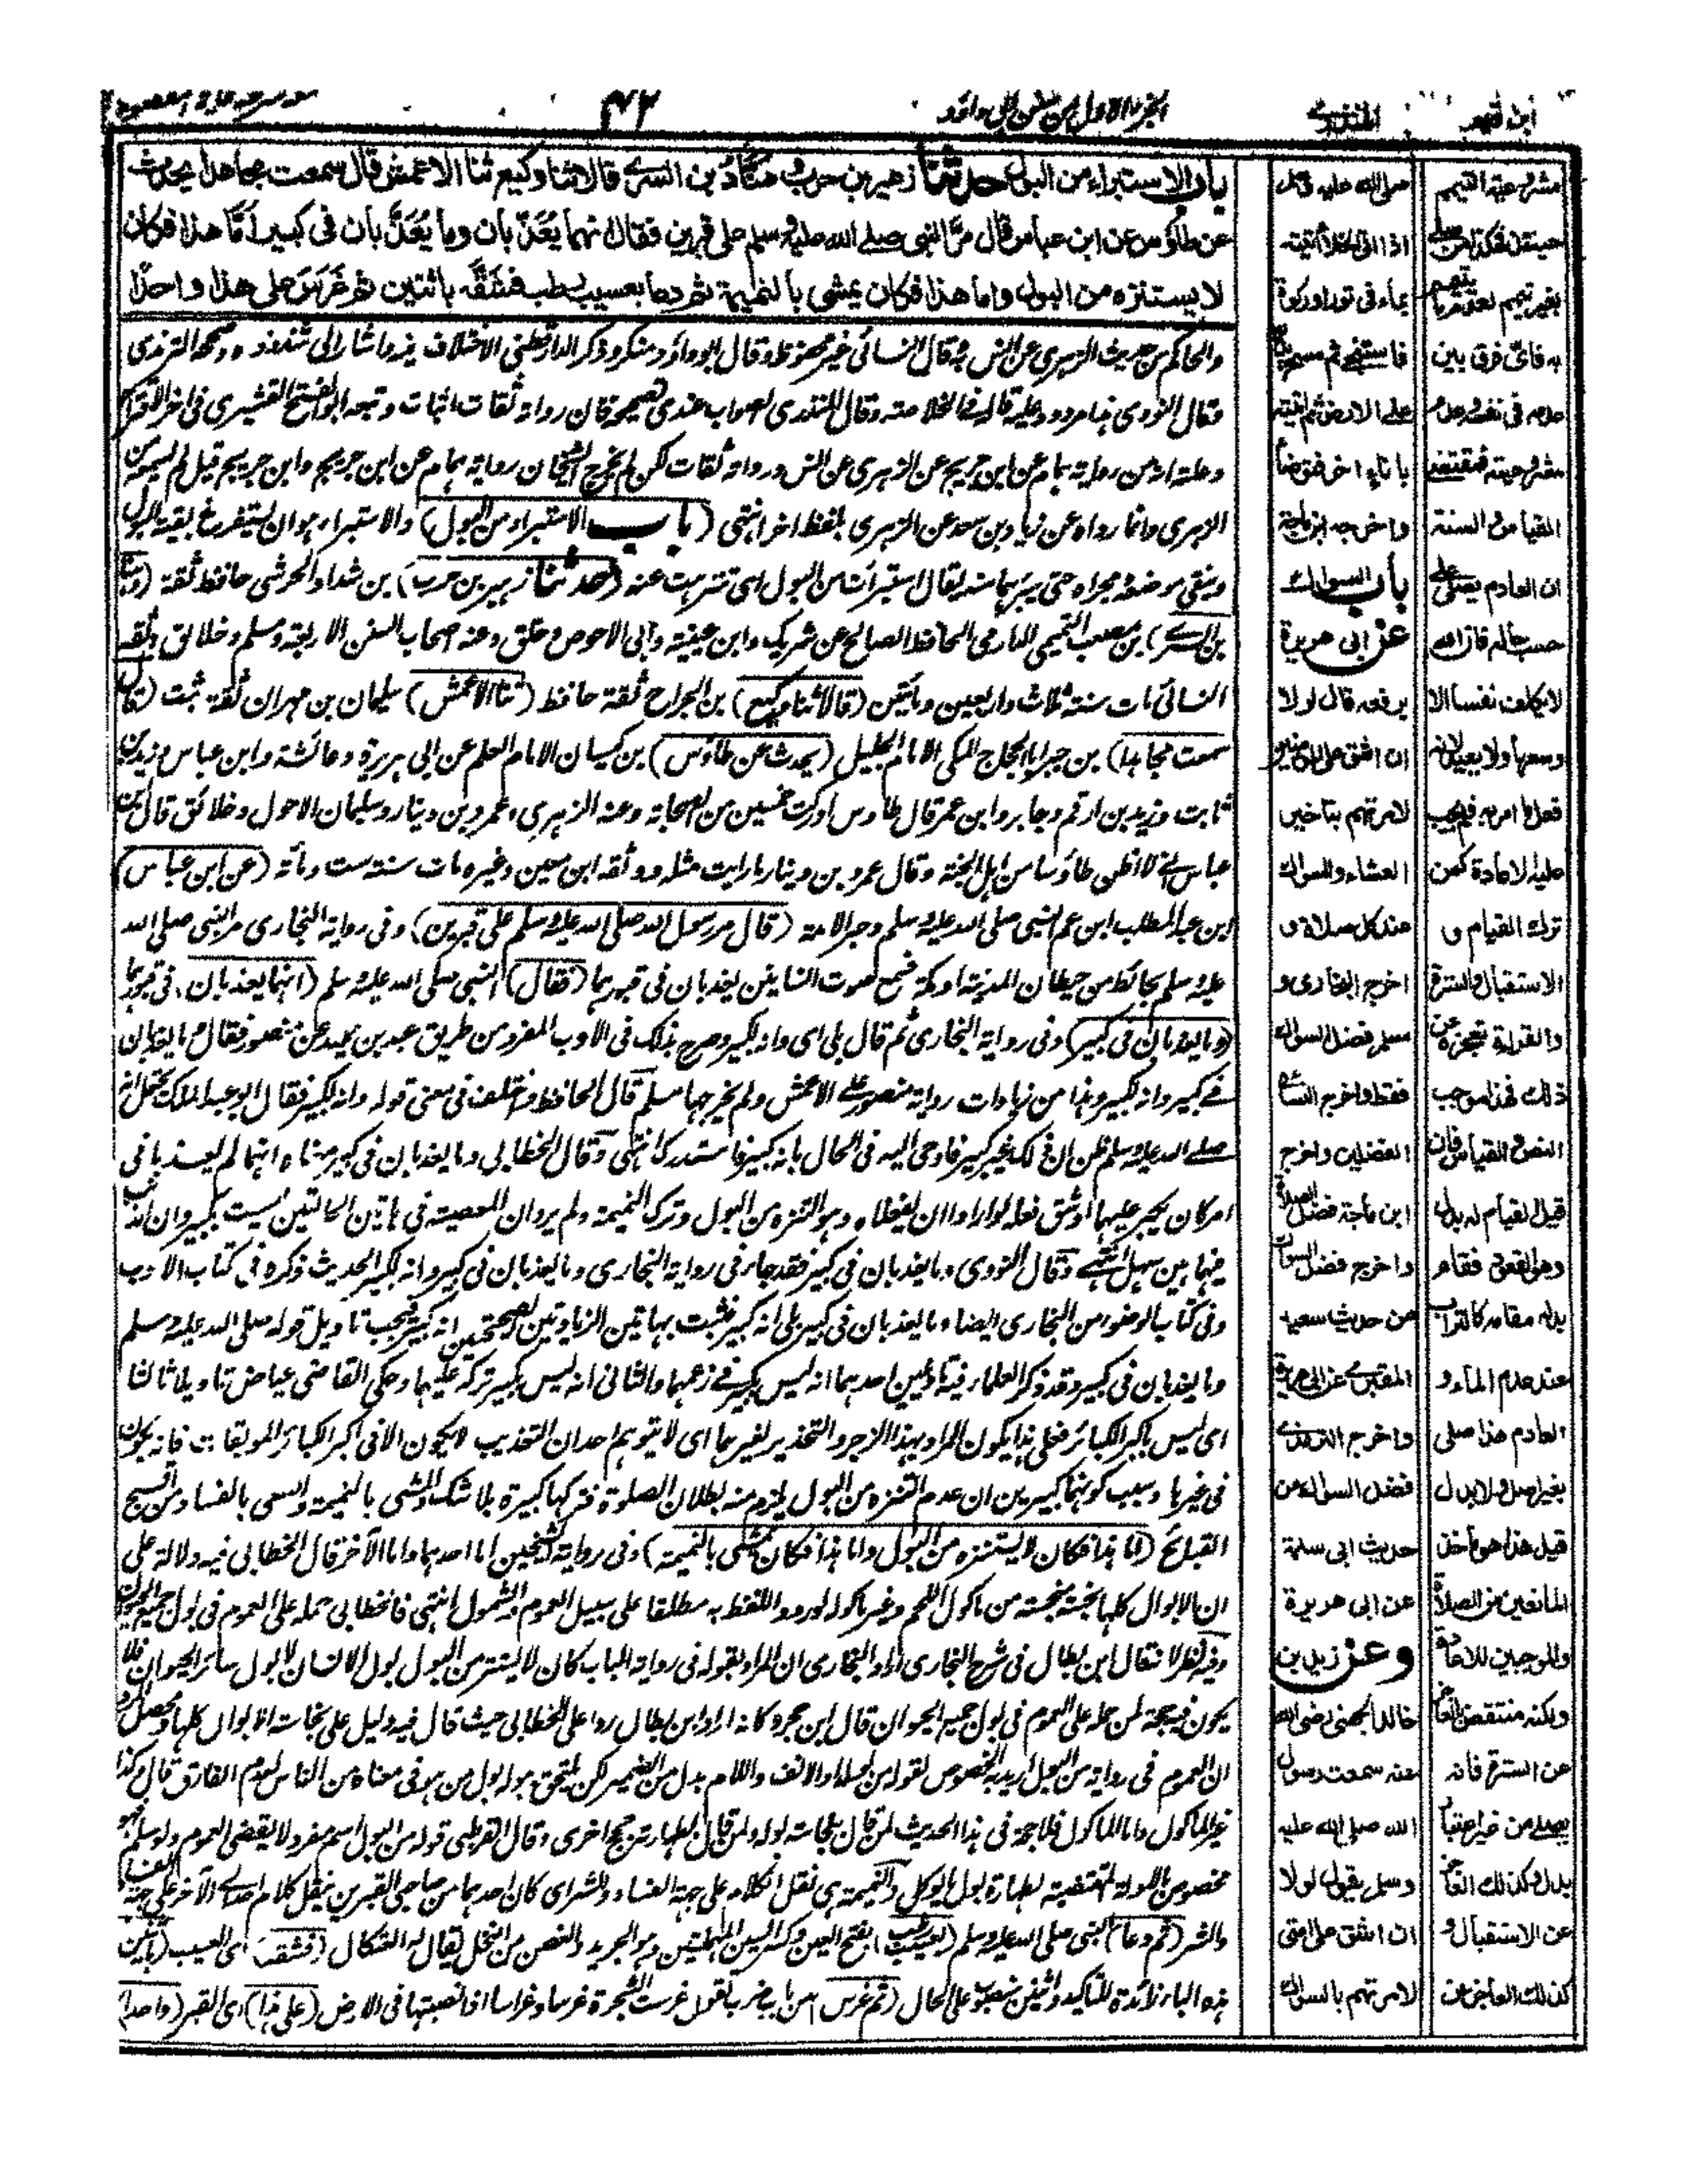 ابن القيم
المنذري
الجزء الاول من سنن ابي داود
٤٢
باب الاستبراء من البول حدثنا زهير بن حرب وهناد بن السري قالا ثنا وكيع ثنا الاعمش قال سمعت مجاهدا يحدث
عن طاؤس عن ابن عباس قال مر النبي صلى الله عليه وسلم على قبرين فقال انهما يعذبان وما يعذبان في كبير اما هذا فكان
لا يستنزه من البول واما هذا فكان يمشي بالنميمة ثم دعا بعسيب رطب فشقه باثنين ثم غرس على هذا واحدا
والحاكم من حديث الزهري عن انس وقال النسائي غير محفوظ وقال ابوداؤد منكر وذكر الدارقطني الاختلاف فيه واشار الى شذوذه وصححه الترمذي
وقال النووي هذا مردود عليه قاله في الخلاصة وقال المنذري الصواب عندي تصحيحه فان رواته ثقات اثبات وتبعه ابو الفتح القشيري في اخر الاقتراح
وعلته انه من رواية همام عن ابن جريج عن الزهري عن انس ورواته ثقات لكن لم يخرج الشيخان رواية همام عن ابن جريج وابن جريج قيل لم يسمعه من
الزهري وانما رواه عن زياد بن سعد عن الزهري بلفظ اخر انتهى (باب الاستبراء من البول) والاستبراء هو ان يستفرغ بقية البول
وينقي موضعه ومجراه حتى يبرئهما منه يقال استبرأت من البول اي تنزهت عنه (حدثنا زهير بن حرب) بن شداد الحرشي حافظ ثقة (وهناد
بن السري) بن مصعب التميمي الدارمي الحافظ الصالح عن شريك وابن عيينة وابي الاحوص وخلق وعنه اصحاب السنن الاربعة ومسلم وخلائق وثقه
النسائي مات سنة ثلاث واربعين ومأتين (قالا ثنا وكيع) بن الجراح ثقة حافظ (ثنا الاعمش) سليمان بن مهران ثقة ثبت (قال
سمعت مجاهدا) بن جبر ابا الحجاج المكي الامام الجليل (يحدث عن طاؤس) بن كيسان الامام العلم عن ابي هريرة وعائشة وابن عباس وزيد بن
ثابت وزيد بن ارقم وجابر وابن عمر قال طاوس ادركت خمسين من الصحابة وعنه الزهري وعمرو بن دينار وسليمان الاحول وخلائق قال ابن
عباس اني لاظن طاؤسا من اهل الجنة وقال عمرو بن دينار ما رايت مثله ووثقه ابن معين وغيره مات سنة ست ومأة (عن ابن عباس)
ابن عبد المطلب ابن عم النبي صلى الله عليه وسلم وحبر الامة (قال مر رسول الله صلى الله عليه وسلم على قبرين) وفي رواية البخاري مر النبي صلى الله
عليه وسلم بحائط من حيطان المدينة او مكة فسمع صوت انسانين يعذبان في قبورهما (فقال) النبي صلى الله عليه وسلم (انهما يعذبان) في قبورهما
(وما يعذبان في كبير) وفي رواية البخاري ثم قال بلى اي وانه لكبير وصرح بذلك في الادب المفرد من طريق عبد بن حميد عن منصور فقال وما يعذبان
في كبير وانه لكبير وهذا من زيادات رواية منصور على الاعمش ولم يخرجها مسلم قال الحافظ واختلف في معنى قوله وانه لكبير فقال ابو عبد الملك يحتمل انه
صلى الله عليه وسلم ظن ان ذلك غير كبير فاوحى اليه في الحال بانه كبير فاستدرك انتهى وقال الخطابي وما يعذبان في كبير معناه انهما لم يعذبا في
امر كان يكبر عليهما او شق فعله لو ارادا ان يفعلاه وهو التنزه من البول وترك النميمة ولم يرد ان المعصية في هاتين الحالتين ليست بكبير وان الذنب
فيهما هين سهل انتهى وقال النووي وما يعذبان في كبير فقد جاء في رواية البخاري وما يعذبان في كبير وانه لكبير الحديث ذكره في كتاب الادب
وفي كتاب الوضوء من البخاري ايضا وما يعذبان في كبير بلى انه كبير فثبت بهاتين الزيادتين الصحيحتين انه كبير فيجب تاويل قوله صلى الله عليه وسلم
وما يعذبان في كبير وقد ذكر العلماء فيه تاويلين احدهما انه ليس بكبير في زعمهما والثاني انه ليس بكبير تركه عليهما وحكى القاضي عياض تاويلا ثالثا
اي ليس باكبر الكبائر فعلى هذا يكون المراد بهذا الزجر والتحذير لغيرهما اي لا يتوهم احد ان التعذيب لا يكون الا في اكبر الكبائر الموبقات فانه يكون
في غيرها وسبب كونهما كبيرين ان عدم التنزه من البول يلزم منه بطلان الصلوة فتركها كبيرة بلا شك والمشي بالنميمة والسعي بالفساد من اقبح
القبائح (اما هذا فكان لا يستنزه من البول واما هذا فكان يمشي بالنميمة) وفي رواية الشيخين اما احدهما واما الآخر قال الخطابي فيه دلالة على
ان الابوال كلها نجسة منجسة من ماكول اللحم وغير ماكوله لورود اللفظ به مطلقا على سبيل العموم والشمول انتهى فالخطابي حمله على العموم في بول جميع الحيوان
وفيه نظر لانه قال ابن بطال في شرح البخاري اراد البخاري ان المراد بقوله في رواية الباب كان لا يستتر من البول بول الانسان لا بول سائر الحيوان فلا
يكون فيه حجة لمن حمله على العموم في بول جميع الحيوان قال ابن حجر وكانه اراد ابن بطال ردا على الخطابي حيث قال فيه دليل على نجاسة الابوال كلها ومحصل الرد
ان العموم في رواية من البول اريد به الخصوص لقوله من بوله او الالف واللام بدل من الضمير لكن يلتحق ببوله بول من هو في معناه من الناس لعدم الفارق قال وكذا
غير الماكول واما الماكول فلا حجة في هذا الحديث لمن قال بنجاسة بوله ولمن قال بطهارته حجج اخرى وقال القرطبي قوله من البول اسم مفرد لا يقتضي العموم ولو سلم فهو
مخصوص بالادلة المقتضية لطهارة بول ما يوكل والنميمة هي نقل الكلام على جهة الفساد والشر اي كان احدهما من صاحبي القبرين ينقل كلام احد الى الآخر على جهة الفساد
والشر (ثم دعا) النبي صلى الله عليه وسلم (بعسيب رطب) بفتح العين وكسر السين المهملتين وهو الجريد والغصن من النخل يقال له العثكال (فشقه) اي العسيب (باثنين)
هذه الباء زائدة للتاكيد واثنين منصوب على الحال (ثم غرس) من باب ضرب تقول غرست الشجرة غرسا وغراسا اذا نصبتها في الارض (على هذا) اي القبر (واحدا)
صلى الله عليه وسلم
اذا اتى الخلاء اتيته
بماء في تور او ركوة
فاستنجى ثم مسح يده
على الارض ثم اتيته
باناء اخر فتوضأ
واخرجه ابن ماجة
باب السواك
عن ابي هريرة
يرفعه قال لولا
ان اشق على المؤمنين
لامرتهم بتاخير
العشاء والسواك
عند كل صلاة و
اخرج البخاري و
مسلم فضل السواك
فقط واخرج النسائي
الفضلين واخرج
ابن ماجة فضل الصلاة
واخرج فضل السواك
من حديث سعيد
المقبري عن ابي هريرة
واخرج الترمذي
فضل السواك من
حديث ابي سلمة
عن ابي هريرة
وعن زيد بن
خالد الجهني رضي الله
عنه سمعت رسول
الله صلى الله عليه
وسلم يقول لولا
ان اشق على امتي
لامرتهم بالسواك
مشروعية التيمم
بغير تيمم
به فاي فرق بين
عدمه في نفسه وعدم
مشروعيته فمقتضى
القياس والسنة
ان العادم يصلي على
حسب حاله فان الله
لا يكلف نفسا الا
وسعها ولا يعيد لانه
فعل ما امر به فلم يجب
عليه الاعادة كمن
ترك القيام و
الاستقبال والسترة
والقراءة لعجزه عن
ذلك فهذا موجب
النص والقياس فان
قيل القيام له بدل
وهو القعود فقام
بدله مقامه كالتراب
عند عدم الماء و
العادم هنا صلى
بغير اصل ولا بدل
قيل هذا هو ماخذ
المانعين من الصلاة
والموجبين للاعادة
ولكنه منتقض بالعاجز
عن السترة فانه
يصلي من غير اعتبار
بدل وكذلك العاجز
عن الاستقبال و
كذلك العاجز عن